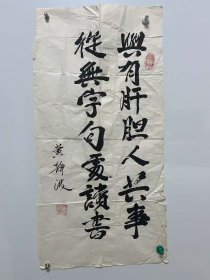 與有肝胆人共事
從無字句處讀書
黄静波